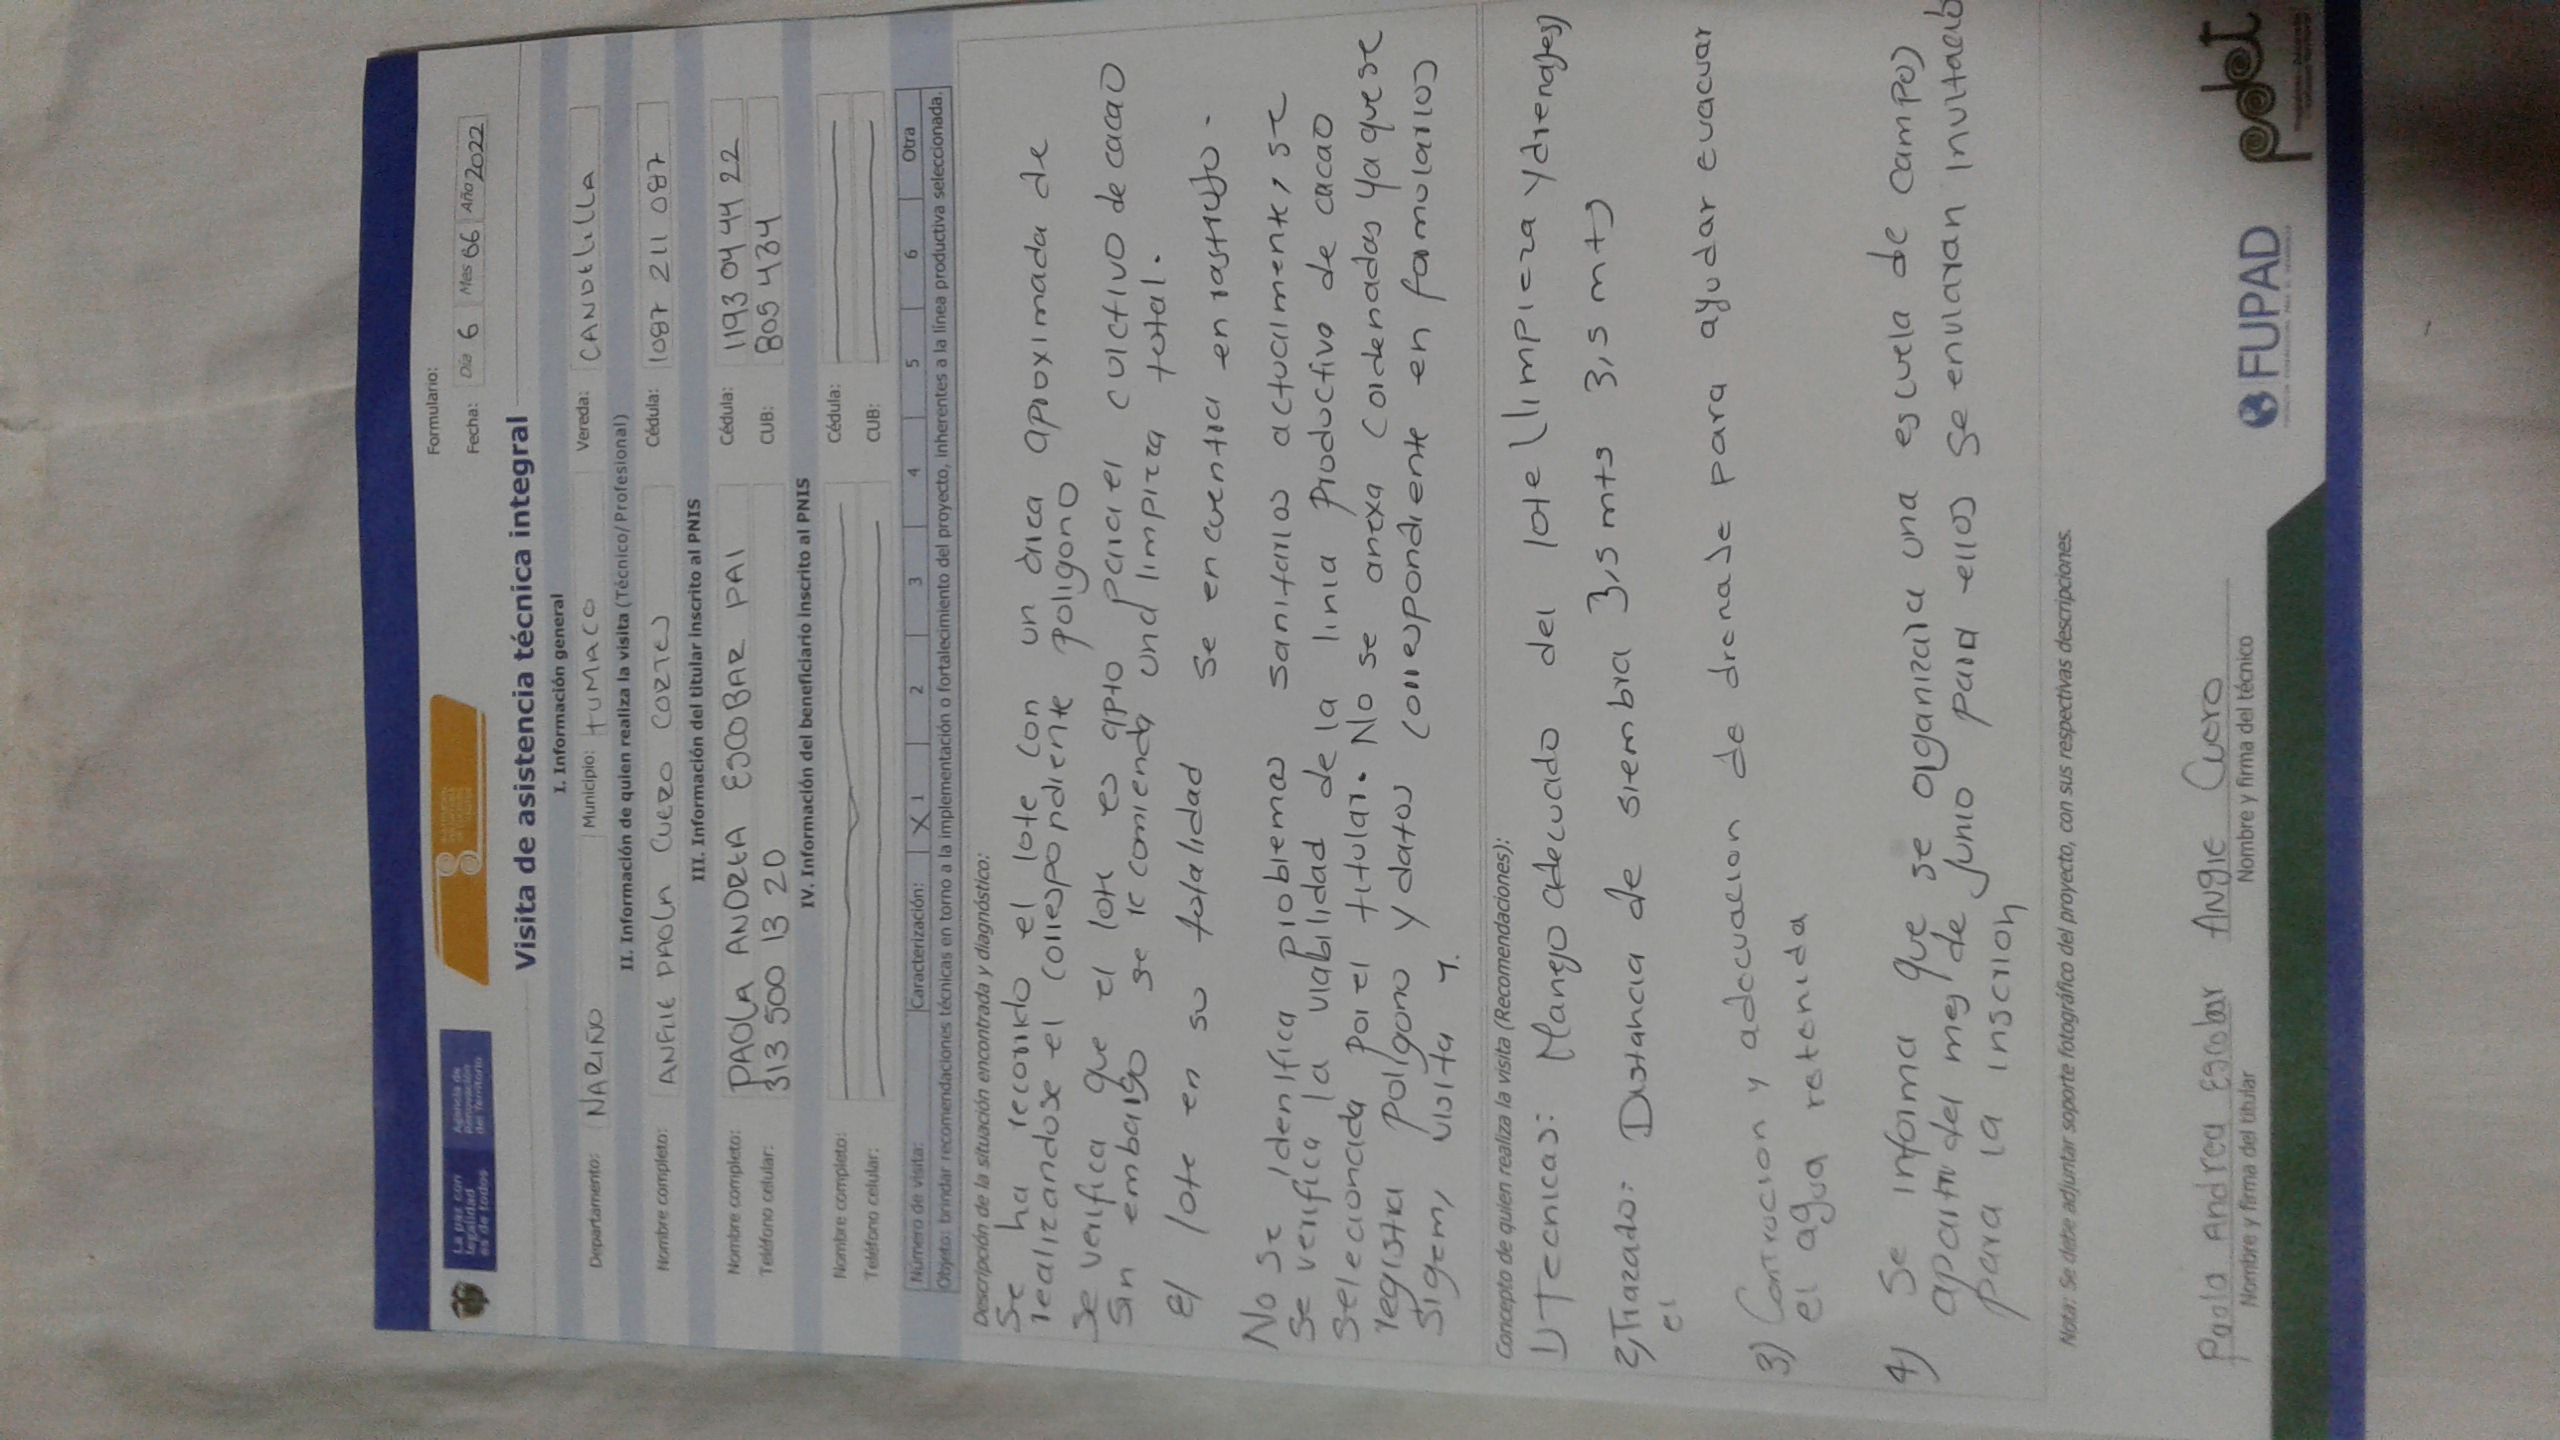 La paz con
legalidad
es de todos
Agencia de
Renovación
del Territorio
Formulario:
Fecha: Día 6 Mes 66 Año 2022
Visita de asistencia técnica integral
I. Información general
Departamento: NARIÑO Municipio: tUMACO Vereda: CANDELILLA
II. Información de quien realiza la visita (Técnico/Profesional)
Nombre completo: PAOLA CUERO CORTES Cédula: 1087 211 087
III. Información del titular inscrito al PNIS
Nombre completo: PAOLA ANDREA ESCOBAR PAI Cédula: 1193 04 44 22
Teléfono celular: 313 500 13 20 CUB: 805 434
IV. Información del beneficiario inscrito al PNIS
Nombre completo: Cédula:
Teléfono celular: CUB:
Número de visita: Caracterización: X 1 2 3 4 5 6 Otra
Objeto: brindar recomendaciones técnicas en torno a la implementación o fortalecimiento del proyecto, inherentes a la línea productiva seleccionada.
Descripción de la situación encontrada y diagnóstico:
Se ha recorrido el lote con un área aproximada de
realizandose el correspondiente poligono
Se verifica que el lote es apto para el cultivo de cacao
Sin embargo se recomienda una limpieza total.
el lote en su totalidad se encuentra en rastrojo.
No se identifica problemas sanitarios actualmente, se
Se verifica la viabilidad de la linia productivo de cacao
Seleccionada por el titular. No se anexa cordenadas ya que se
registra poligono y datos correspondiente en formularios
Sigem, visita 1.
Concepto de quien realiza la visita (Recomendaciones):
1) Tecnicas: Manejo adecuado del lote (limpieza y drenajes)
2) Trazado: Distancia de siembra 3,5 mts 3,5 mts
el
3) Contrucion y adecuacion de drenaje para ayudar evacuar
el agua retenida
4) Se informa que se organizara una escuela de campo)
apartir del mes de Junio para ellos se enviaran invitacio
para la inscrion
Nota: Se debe adjuntar soporte fotográfico del proyecto, con sus respectivas descripciones.
Paola Andrea Escobar Angie Cuero
Nombre y firma del titular Nombre y firma del técnico
FUPAD
PDET